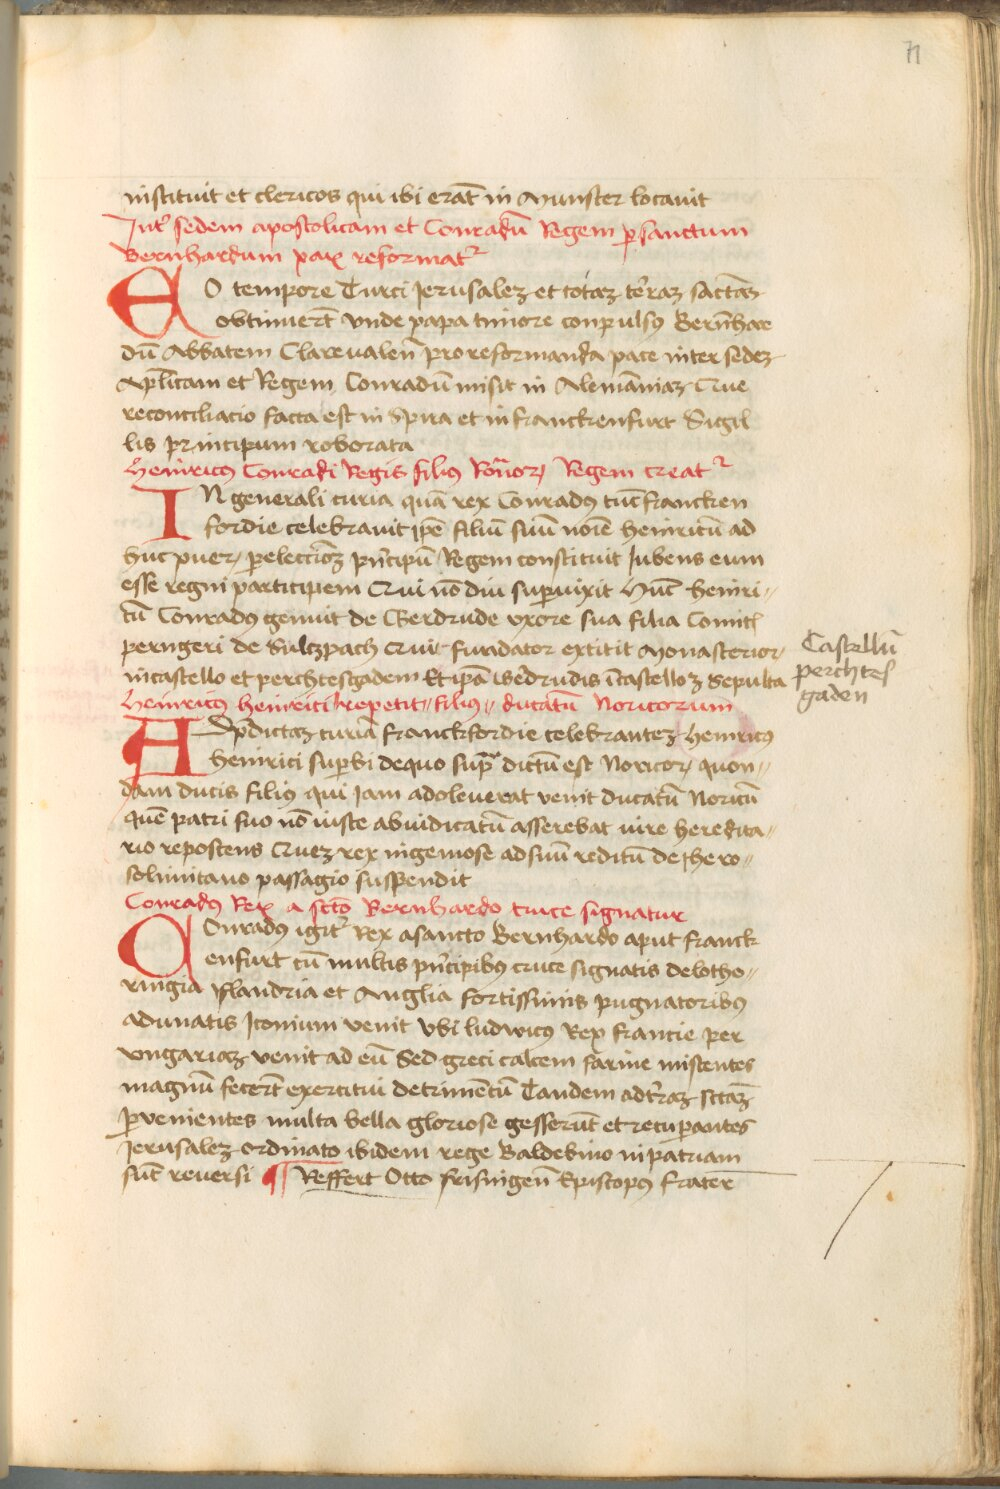 71
instituit et clericos qui ibi erāt in Munster locauit
Int͛ sedem apostolicam et Conradū Regem p sanctum
Bernhardum pax reformat͛
EO tempore Turci Jerusalez et totaz terraz sāctaz
obtinuerūt vnde papa timore conpulsꝰ Bernhar
dū Abbatem Clareualen̄ pro reformanda pace inter sedez
Aplicam et Regem Conradū misit in Alemāniaz Que
reconciliacio facta est in Spira et in franckenfurt Sigil
lis principum roborata
Heinricus Conradi Regis filiꝰ Romorꝝ Regem creat͛
IN generali curia quā rex Conradꝰ tūc francken
fordie celebrauit ip̄e filiū suū noīe heinricū ad
huc puerꝝ p electiōez pn̄cipū Regem constituit Iubens eum
esse regni participem Qui nō diu supuixit Hūc heinri〃
cū Conradꝰ genuit de Gerdrude vxore sua filia Comitꝭ
perngeri de Sultzpach Qui fundator extitit Monasteriorꝝ
in castello et perchtesgadem Et ip̄a Gedrudis ī castelloz Sepulta
Castellū
perchtes
gaden
Heinricꝰ heinrici repetit〃 filiꝰ〃 ducatū Noricorum
AD p̄dictaz curiā franckfordie celebrantez Heinricꝰ
heinrici supbi de quo sup̄ dictū est Noricorꝝ quon〃
dam ducis filiꝰ qui iam adoleuerat venit ducatū Noricū
quē patri suo nō iuste abiudicatū asserebat iure heredita〃
rio reposcens Quez rex ingeniose ad suū reditū de Jhero〃
solimitano passagio suspendit
Conradꝰ Rex a sctō Bernhardo cruce signatur
COnradꝰ igit͛ Rex a sancto Bernhardo aput franck
enfurt cū multis pn̄cipibꝰ cruce signatis de lotho〃
ringia flandria et Anglia fortissimis pugnatoribꝰ
adunatis Iconium venit Vbi ludwicꝰ Rex francie per
vngariaz venit ad eū Sed greci calcem farine miscentes
magnū fecerūt exercitui detrimētū Tandem ad terraz sctaz
pvenientes multa bella gloriose gesserūt et recupantes
Jerusalez ordinato ibidem rege Baldebino in patriam
sūt reuersi ¶ Reffert Otto frisingen̄ Episcopꝰ frater